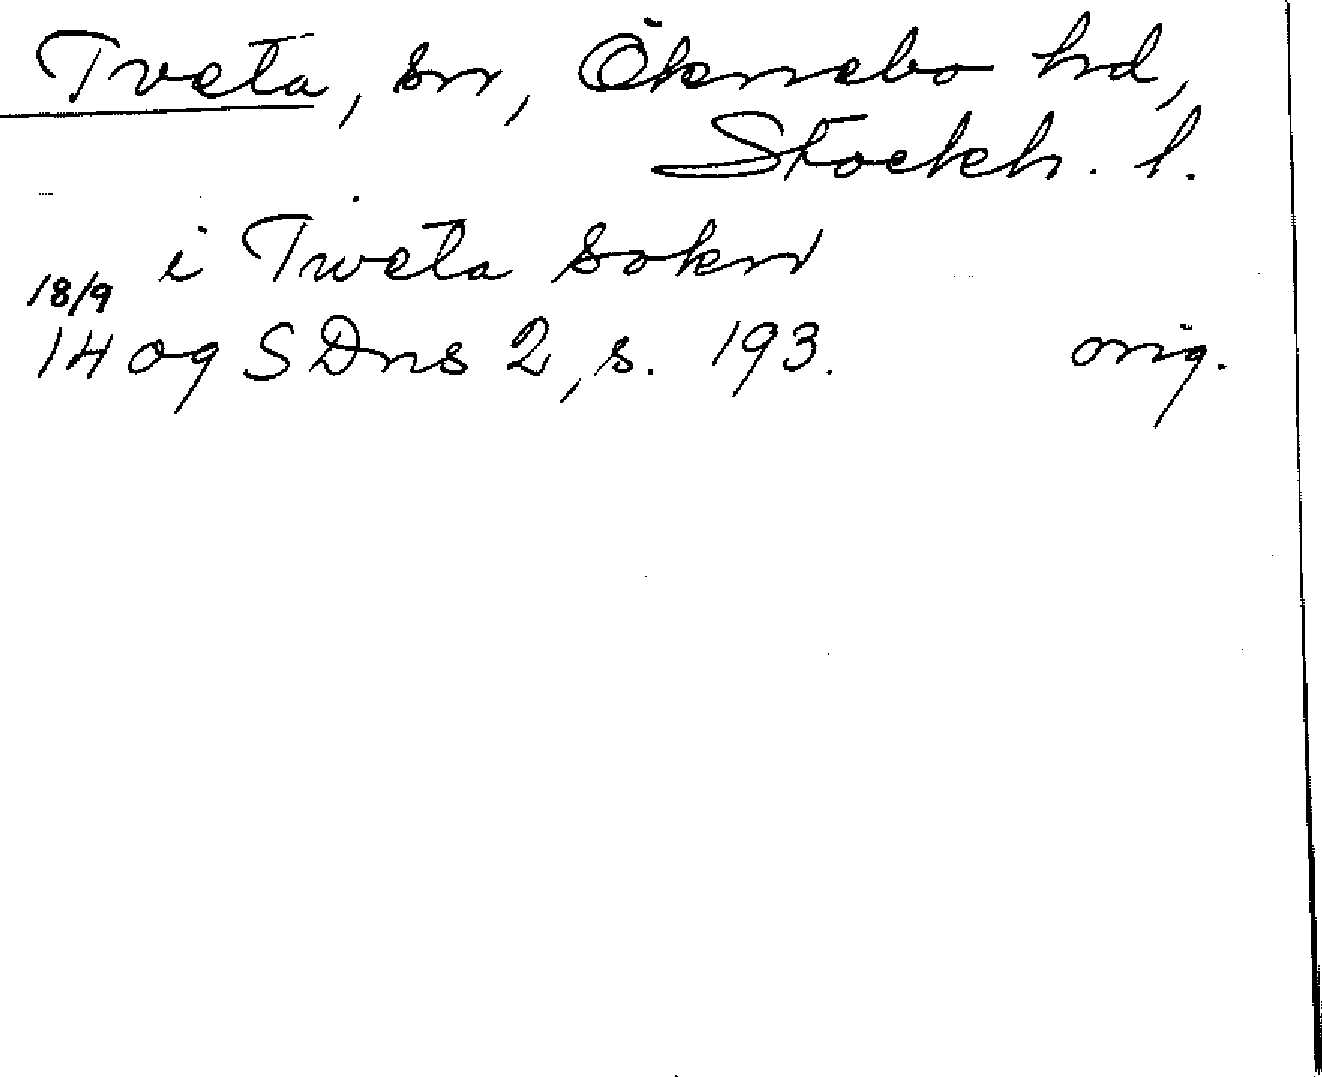 Tveta, sn, Öknebo hd,
Stockh. l.
i Tweta sokn
18/9
1409 SDns 2, s. 193. orig.